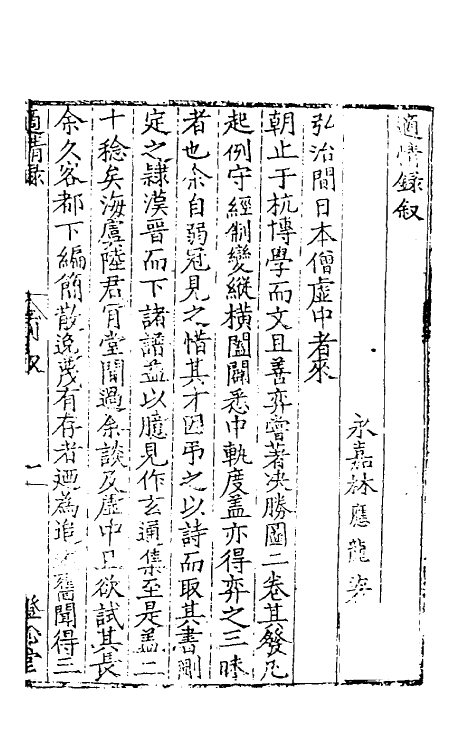 適情錄敘
永嘉林應龍
弘治間日本僧虛中者來
朝止于杭博學而文且善弈嘗著決勝圖二卷其發凡
起例守經制變縱橫闔闢悉中軌度蓋亦得弈之三昧
者也余自弱冠見之惜其才因弔之以詩而取其書刪
定之隸漢晉而下諸譜益以臆見作玄通集至是蓋二
十稔矣海虞陸君肖堂間過余談及虛中且欲試其長
余久客都下編簡散逸蔑有存者廼為追舊聞得三
適情錄
敘
一